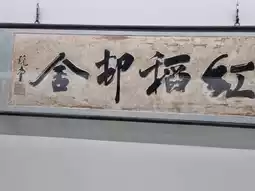 紅稻邨舍